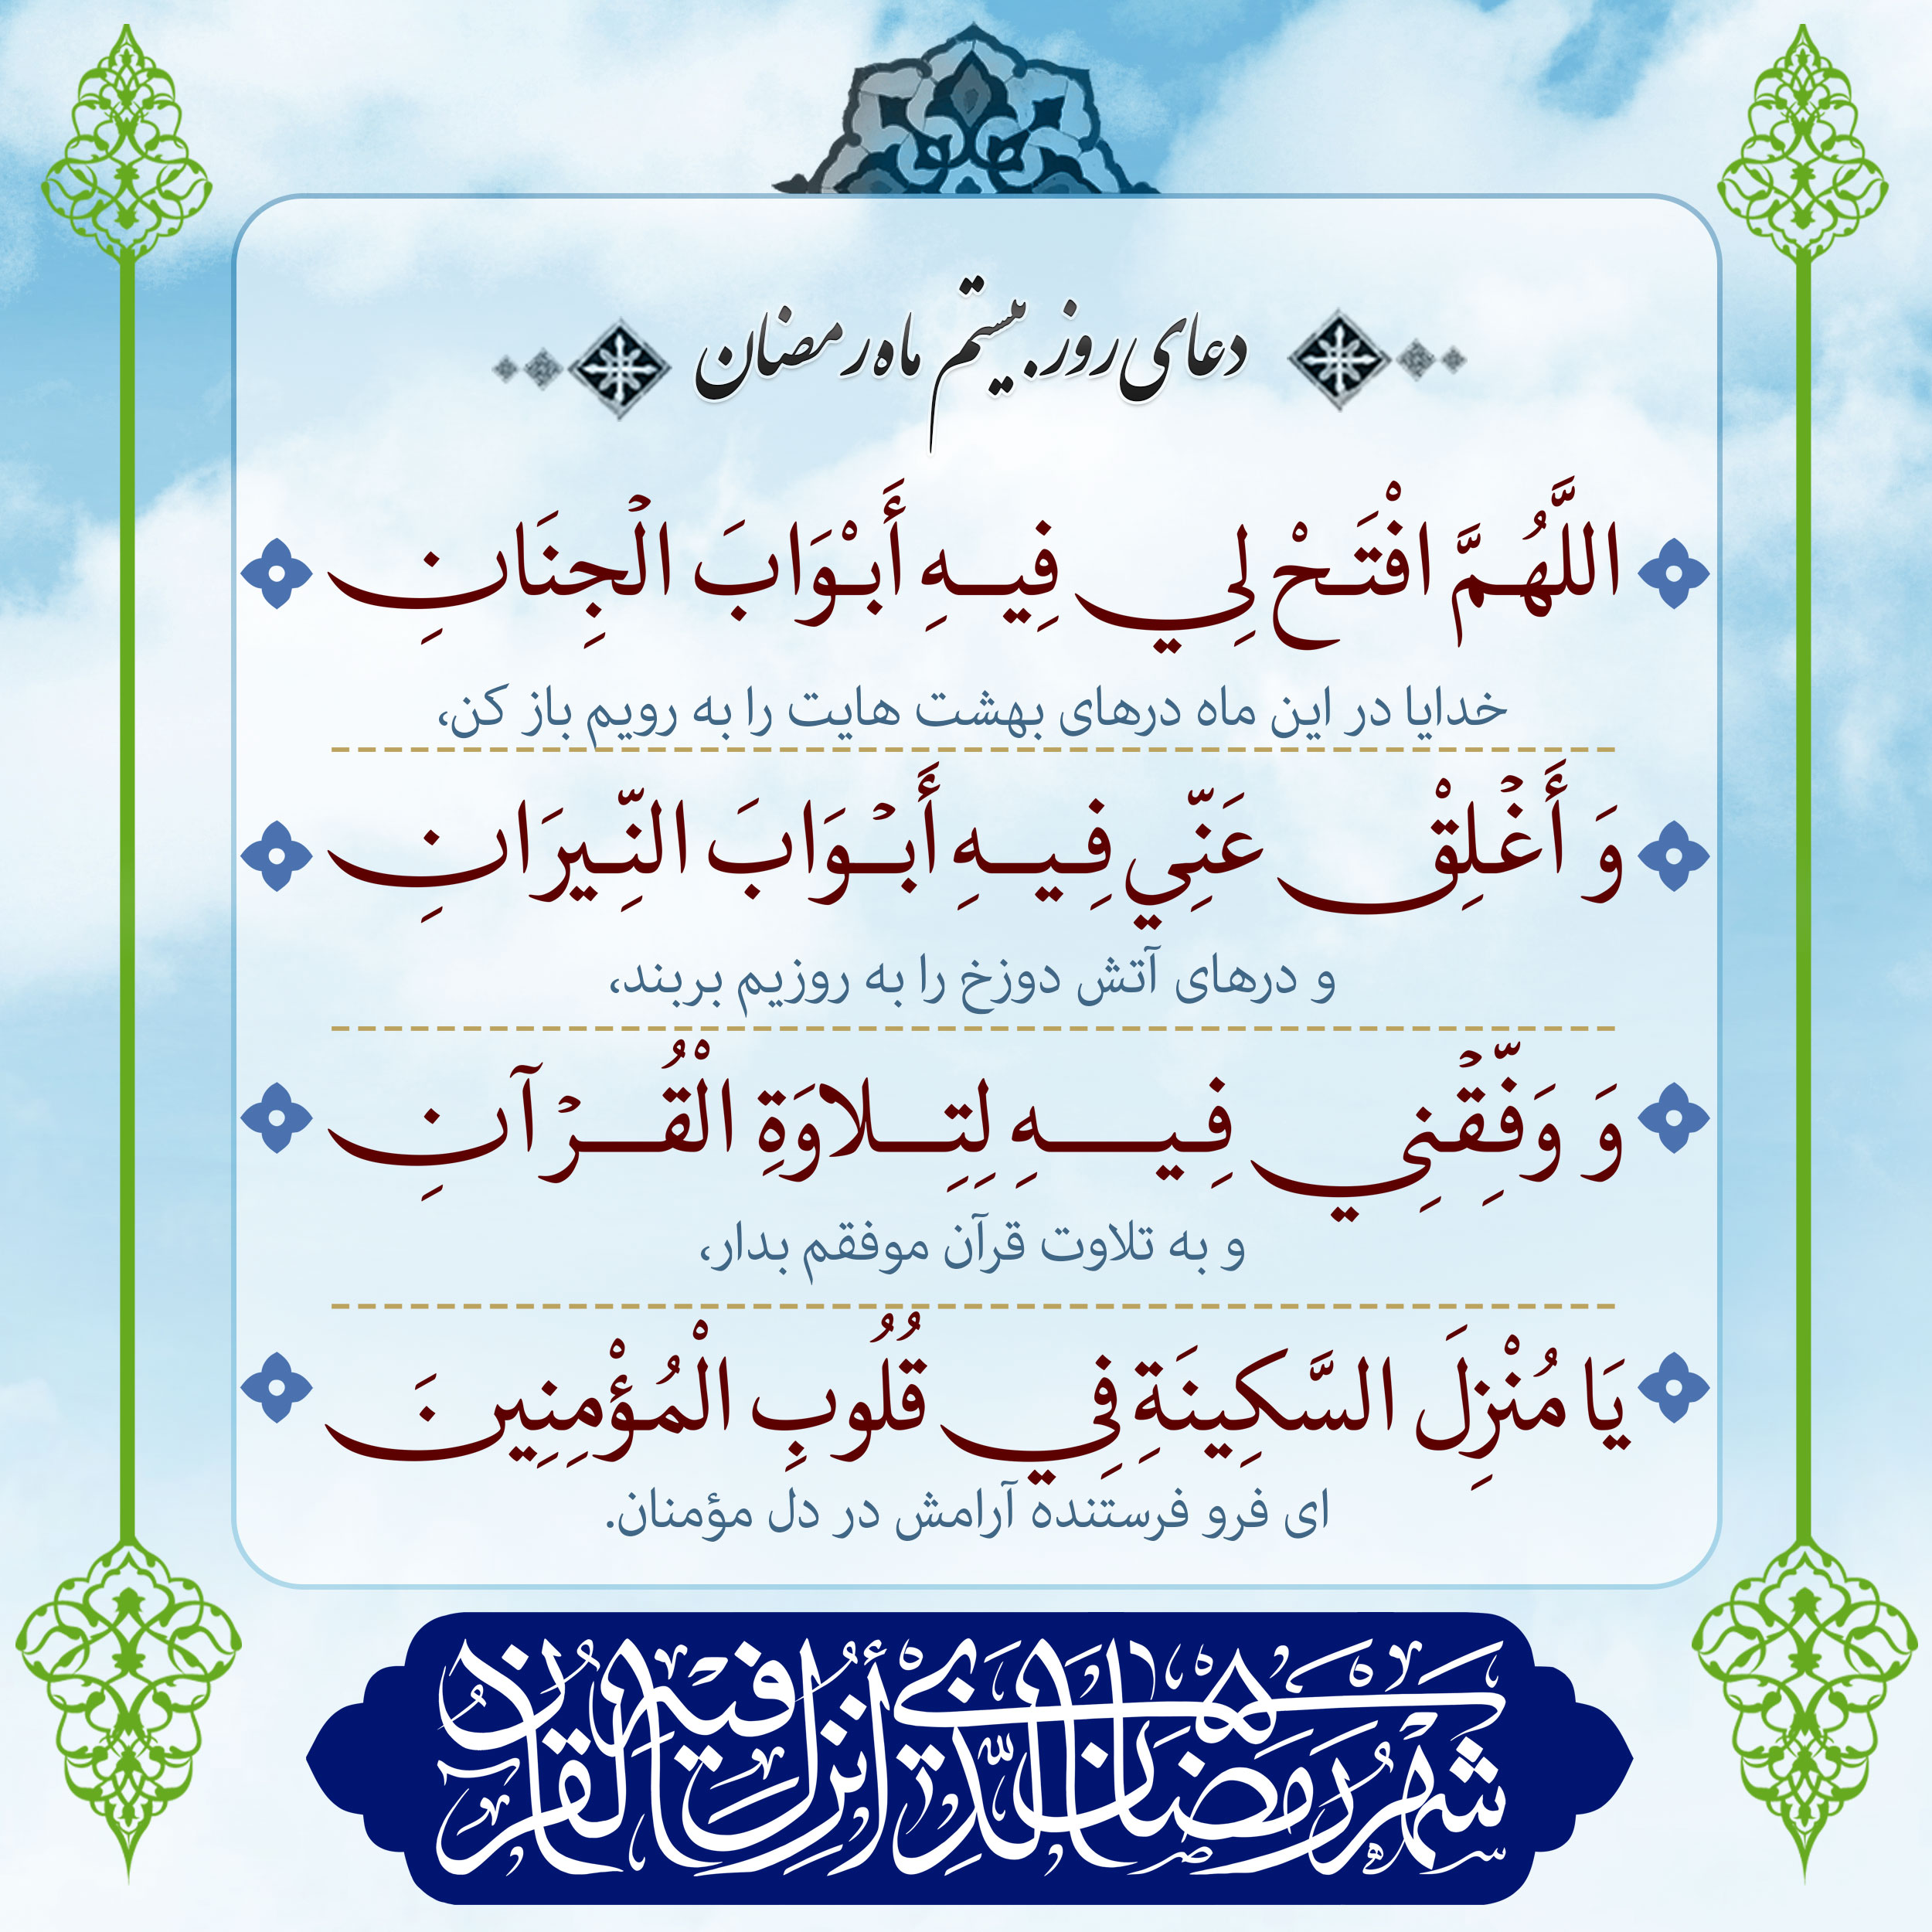 دعای روز بیستم ماه رمضان
اللَّهُمَّ افْتَحْ لِي فِيهِ أَبْوَابَ الْجِنَانِ
خدایا در این ماه درهای بهشت هایت را به رویم باز کن،
وَ أَغْلِقْ عَنِّي فِيهِ أَبْوَابَ النِّيرَانِ
و درهای آتش دوزخ را به روزیم بربند،
وَ وَفِّقْنِي فِيهِ لِتِلاوَةِ الْقُرْآنِ
و به تلاوت قرآن موفقم بدار،
يَا مُنْزِلَ السَّكِينَةِ فِي قُلُوبِ الْمُؤْمِنِينَ
ای فرو فرستنده آرامش در دل مؤمنان.
شهر رمضان الذی أنزل فیه القرآن